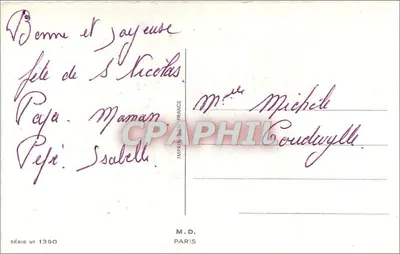 Bonne et joyeuse
fête de S Nicolas
Papa. Maman
Pépé. Isabelle
Mlle Michèle
CPAPHIL
IMPRIMÉ EN FRANCE
M.D.
PARIS
SÉRIE Nº 1350